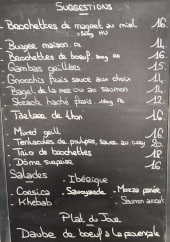 SUGGESTIONS
- Brochettes de magret au miel 16
- Burger maison 14
- Brochettes de boeuf 16
- Gambas grillées 15
- Gnocchis frais sauce aux choix 14
- Bagel de la mer ou au saumon 14
- Steack haché frais 12
- Tartare de thon 16
- Mixed grill 16
- de poulpes, sauce au 20
- Trio de brochettes 18
- Dôme surprise 16
Salades
- Ibérique
- Corsica - Savoyarde - Mozza panée
- Khebab - Saumon
Plat du Jour
Daube de boeuf à la provençale